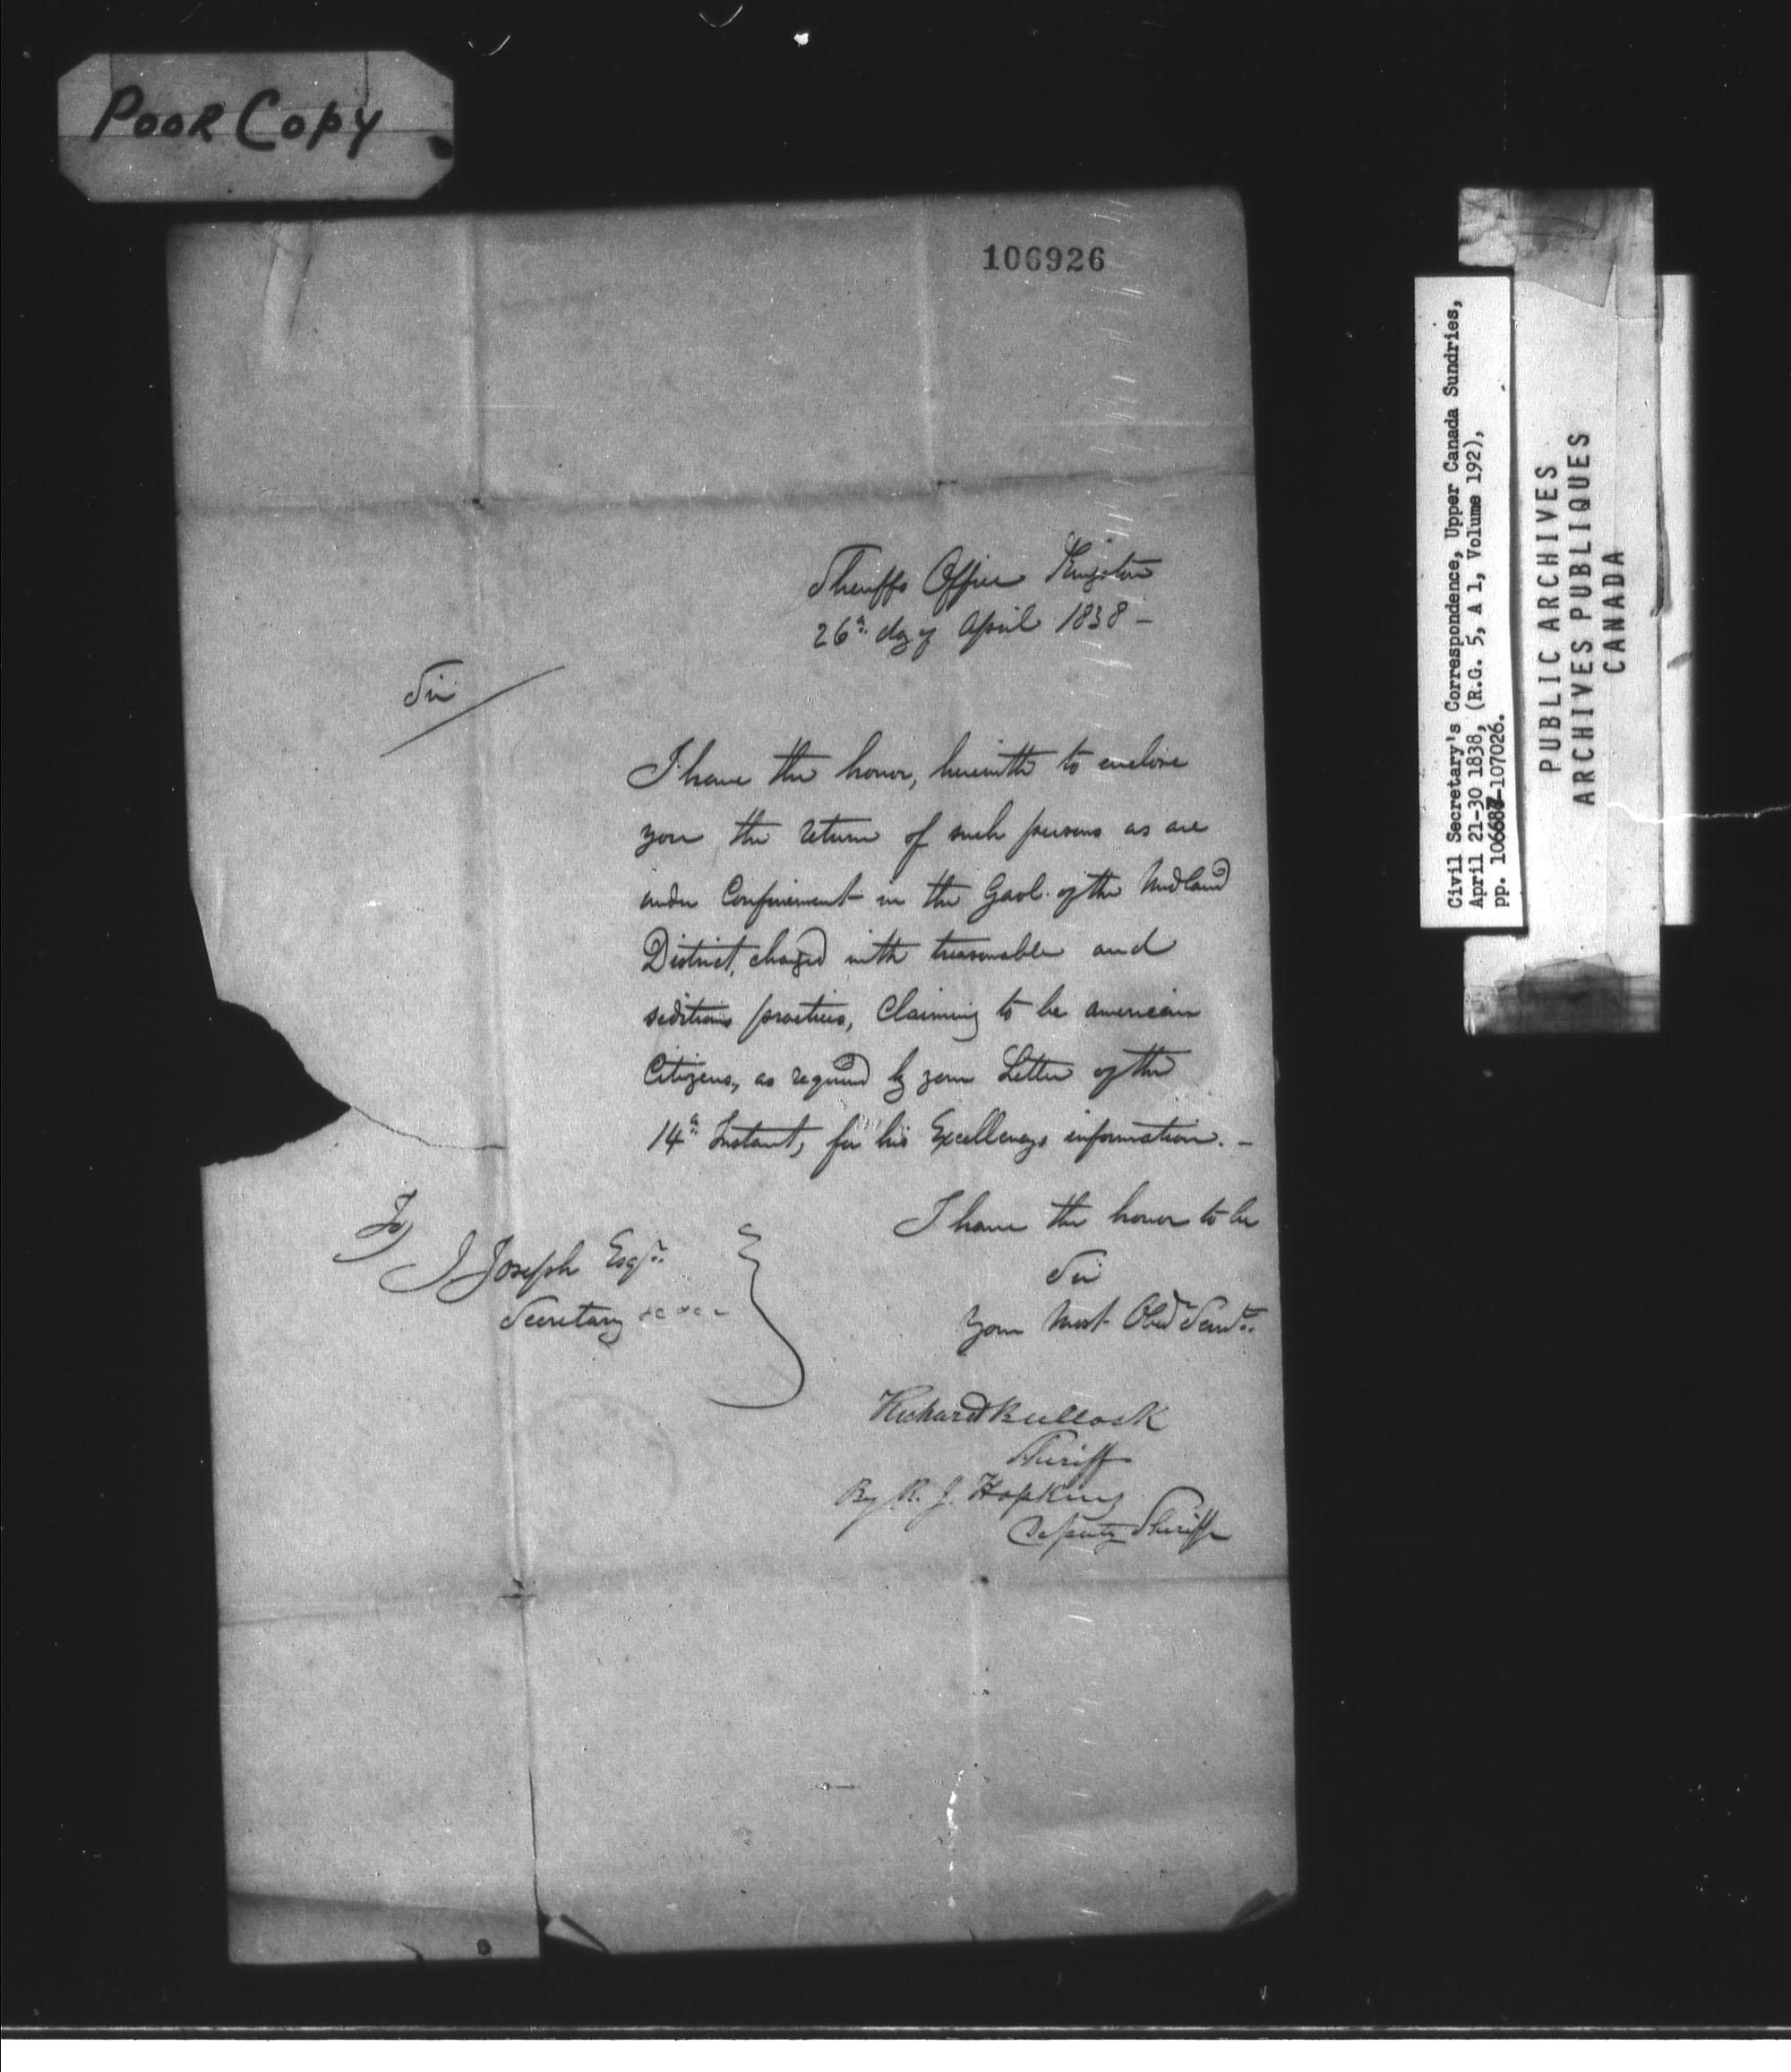 POOR COPY
106926
Sheriffs Office Kingston
26th day of April 1838 -
Sir
I have the honor, herewith to enclose
you the return of such persons as are
under Confinement in the Gaol of the Midland
District, charged with treasonable and
seditious practices, Claiming to be american
Citizens, as required by your Letter of the
14th Instant, for his Excellencys information. -
I have the honor to be
Sir
Your Most Obed Servt
To
J Joseph Esqr
Secretary &c &c &c
Richard Bullock
Sheriff
By R. J. Hopkins
Deputy Sheriff
Civil Secretary's Correspondence, Upper Canada Sundries,
April 21-30 1838, (R.G. 5, A 1, Volume 192),
pp. 106687-107026.
PUBLIC ARCHIVES
ARCHIVES PUBLIQUES
CANADA